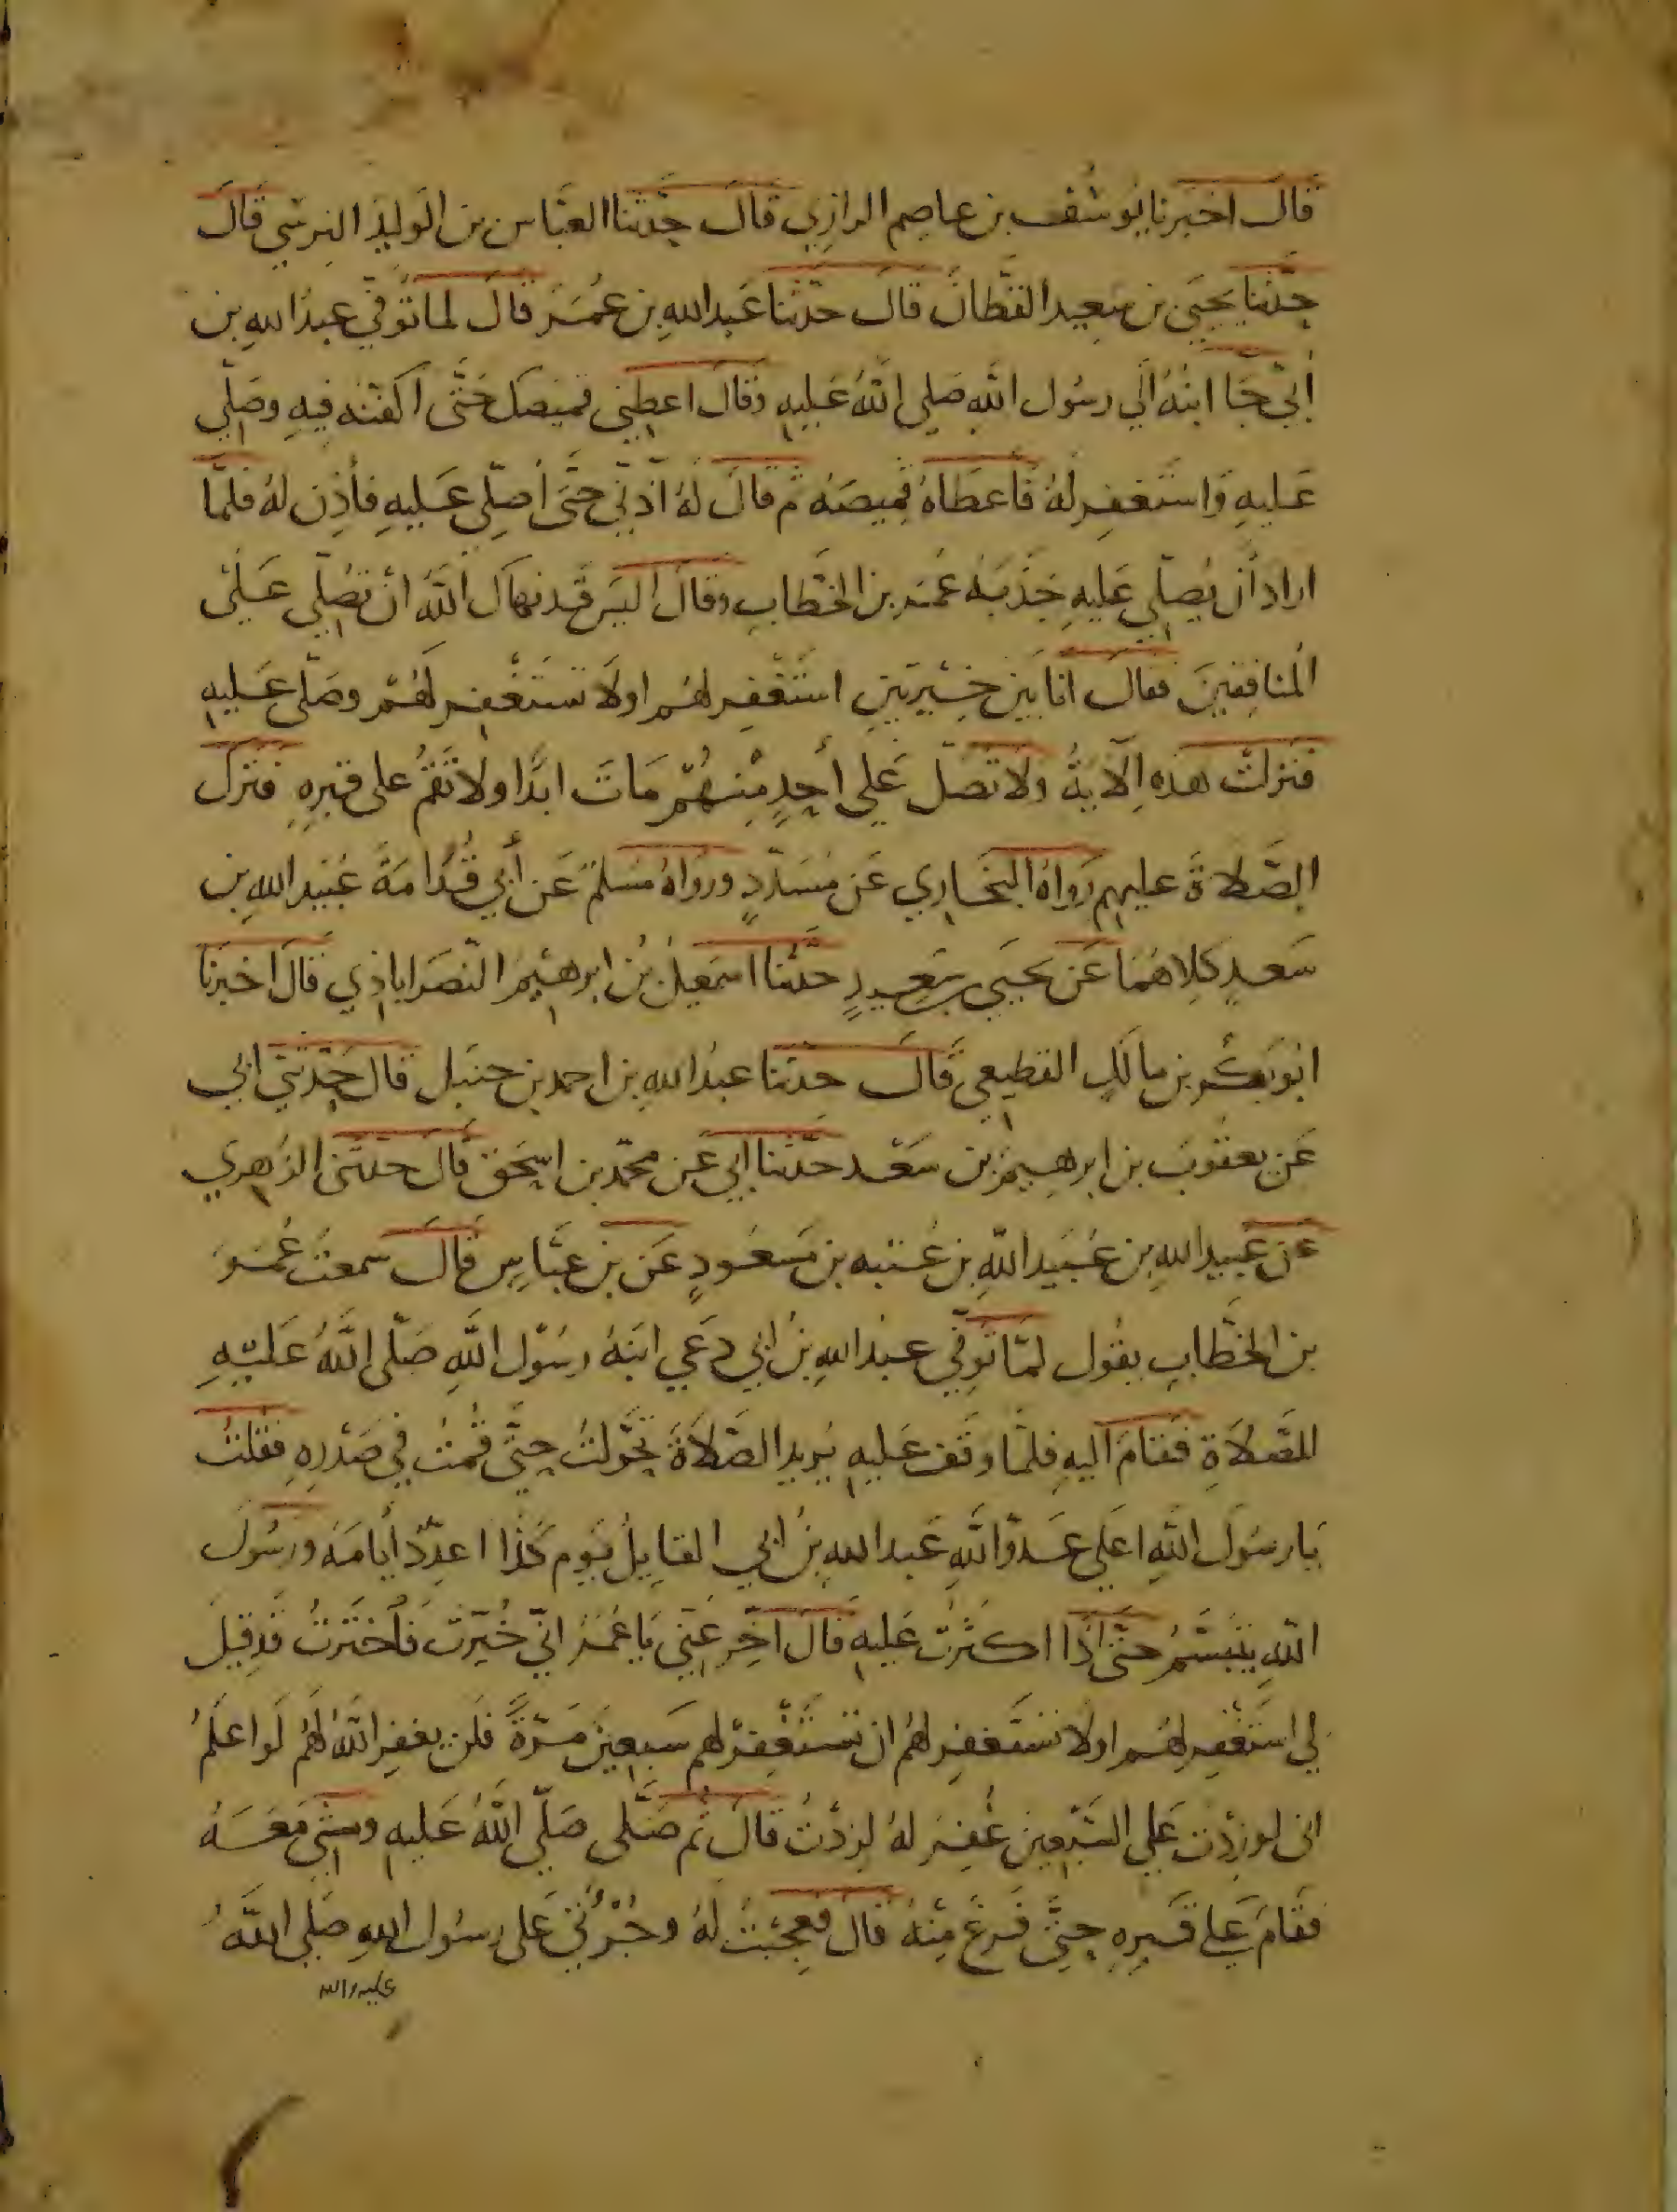 قالَ اخبرنا يُوسُف بن عاصِم الرازِي قالَ حدّثنا العبَّاس بن الوَليد النرسي قالَ
حدّثنا يحيَى بن سَعِيد القطانُ قالَ حدّثنا عَبد اللهِ بن عُمَرَ قالَ لما تُوفي عبدُ اللهِ بن
أبيّ جَا ابنُهُ الَي رسُول اللهِ صَلي اللهُ عَليهِ وَقالَ اعطِني قميصَك حَتّى اكفّنه فيهِ وصَلّي
عَليهِ وَاستَغفِر لهُ فَاعطَاهُ قميصَه ثم قالَ لهُ آذنّي حتَّى أُصلّي عَليهِ فأذِن لهُ فلمَّا
اراد أن يُصَلّي عَليهِ جَذَبَهُ عُمَر بن الخطابِ وقالَ اليسَ قد نهاكَ اللهُ انْ تصَلّي عَلَى
المنافِقينَ فقالَ انا بَين خِيرَتينِ استَغفِر لهُم اولَا تَستَغفِر لَهُم وصَلّى عَليهِ
فنَزلتْ هذهِ الآيةُ ولا تصَلّ عَلي أحدٍ مِنهُمْ مَاتَ ابدًا ولا تَقُمْ على قبرِهِ فترَكَ
الصَّلاةَ عليهم رَوَاهُ البخَاري عَن مُسَدّدٍ ورَوَاهُ مُسْلمٌ عَن أَبي قُدَامَةَ عُبَيد اللهِ بن
سَعيدٍ كلاهُمَا عَن يحيَى بن سَعِيدٍ حدَّثنا اسمَعِيلُ بنُ ابرهيمَ النّصرَاباذِي قالَ اخبرَنا
ابُو بَكر بن مالكٍ القطيعي قَالَ حدثنا عبدُ اللهِ بن احمد بن حنبَل قالَ حَدّثني ابي
عَن يعقُوبَ بن ابرهِيمَ بن سَعْد حدّثنا ابي عَن محمّد بن اسحَق قالَ حدّثني الزهري
عَن عبيد اللهِ بن عُبَيد اللّهِ بن عُتبه بن مَسْعُودٍ عَن بن عَبَّاسٍ قالَ سمعتُ عُمَرَ
بن الخطَّابِ يقُول لمّا تُوفّي عبدُ اللهِ بنُ ابي دعَي ابنُهُ رسُول اللَّهِ صَلّى اللَّهُ عَليهِ
للصَّلاةِ فقامَ اليهِ فلمّا وقَف عَليهِ يُريد الصَّلاةَ تحَوّلتُ حتَّى قُمتُ في صَدْرهِ فقُلتُ
يَا رسُولَ اللهِ اعَلي عَدوّ اللهِ عَبد اللهِ بنُ ابي القايلُ يَوم كَذَا اعدّدُ أيامَهُ ورسُولُ
اللهِ يتَبَسَّمُ حتَّى اذَا اكثرْتُ عَليهِ قالَ اخّر عَنّي يَا عُمَرُ انّي خُيّرتُ فاختَرتُ قد قِيلَ
لي استَغفِر لهُم اولَا تستَغفِر لهُم ان تستَغفِرْ لهم سَبعِينَ مَرّةً فلن يغفِرَ اللهُ لهُم لَو اعلمُ
انى لو زدْت عَلي السَبعينَ غُفِرَ لهُ لزدْتُ قالَ ثم صَلّى صَلّي اللهُ عَليهِ ومشَي مَعَهُ
فقَامَ عَلي قبرهِ حتَّى فَرغَ مِنْهُ قالَ فعجبتُ لهُ وجُرْأتي عَلى رسُولِ اللهِ صَلي اللهُ
عليه واله